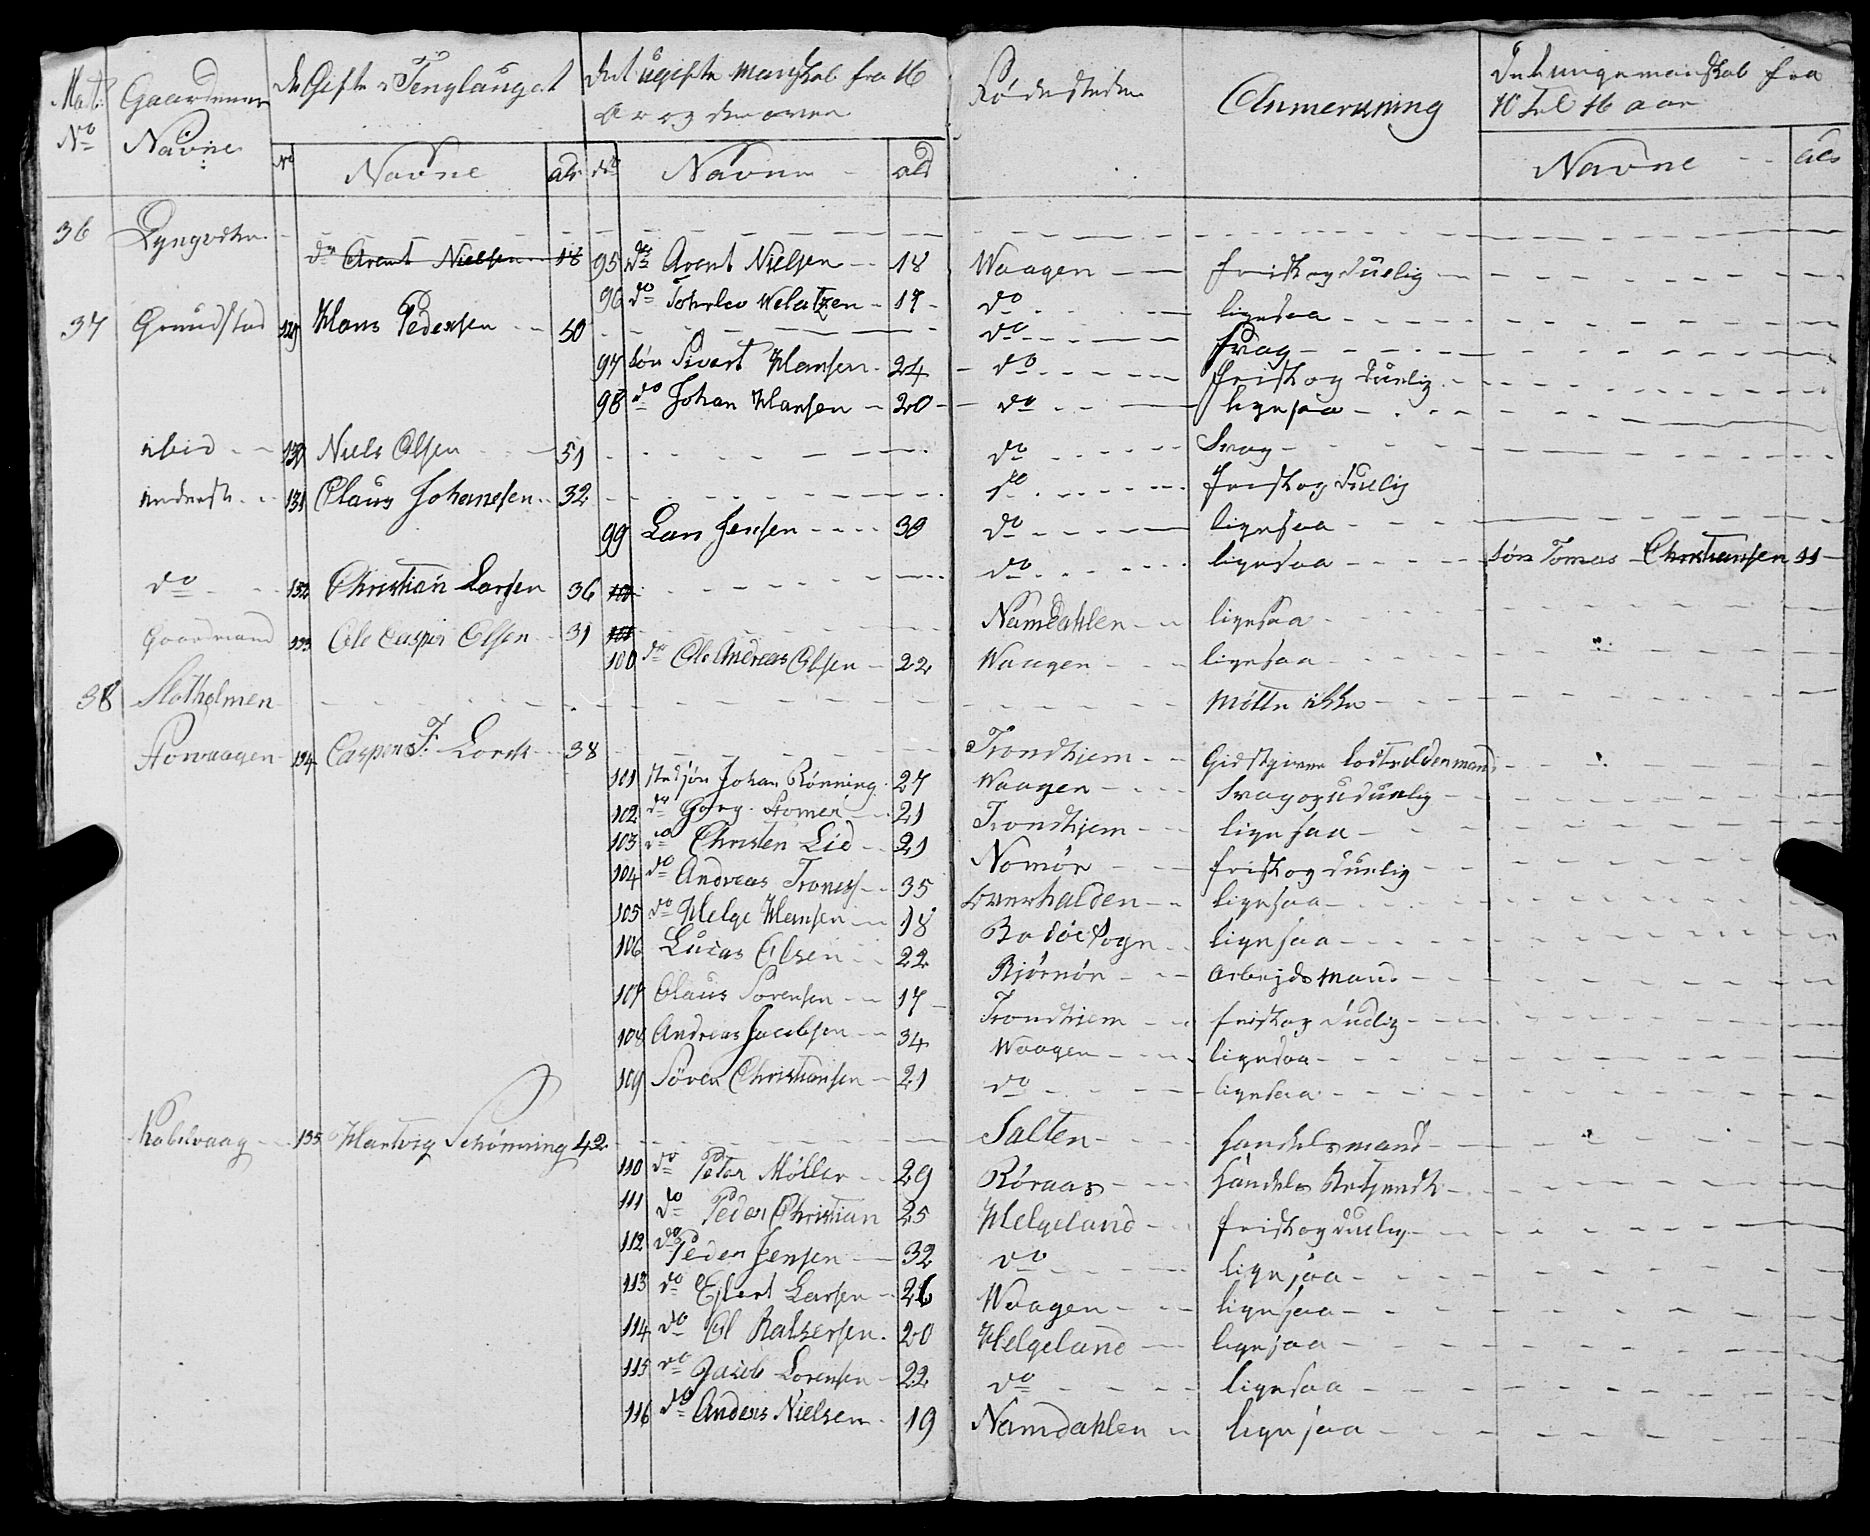 Mat: Gaardenes De Gifte i Tenglauget Det ugifte Manskab fra 16 Fødesteder Anmerkning De unge mandskab fra
No Navne Ar og der over 10 til 16 aar
No Navne alr No Navne ald Navne ald
36 Lyngvær
do Arent Nielsen 18 95 do Arent Nielsen 18 Waagen frisk og duelig
96 do Tohrlev Welatzen 17 do ligesaa
37 Grundstad 129 Hans Pedersen 50 do Svag
97 Søn Sivert Hansen 24 do frisk og duelig
98 do Johan Hansen 20 do ligesaa
ibid 130 Niels Olsen 51 do Svag
131 Claus Johansen 32 do frisk og duelig
99 Lars Jensen 30 do ligesaa
do 132 Christian Larsen 36 100 do ligesaa Søn Tomas Christiansen 11
Gaardmand 133 Ole Casper Olsen 31 101 Namdahlen ligesaa
100 do Ole Andreas Olsen 22 Waagen ligesaa
38 Slotholmen Mötte ikke
Storvaagen 134 Caspen F: Lorck 38 Trondhiem Giestgiver
101 Stedsøn Johan Rönning 27 Waagen Svag og uduelig
102 do Georg Stomer 21 Trondhjem ligesaa
103 do Christen Lid 21 Nomör frisk og duelig
104 do Andreas Troness 35 Overhalden ligesaa
105 do Helge Hansen 18 Bodöe Sogn ligesaa
106 Lucas Olsen 22 Bjørnör Arbeijdsmand
107 Claus Sorensen 17 Trondhiem frisk og duelig
108 Andreas Jacobsen 34 Waagen ligesaa
109 Sören Christiansen 21 do ligesaa
Kabelvaag 135 Hartvig Schönning 42 Salten Handelsmand
110 do Peter Möller 29 Röraas Handels Betjendt
111 do Peder Christian 25 Helgeland frisk og duelig
112 do Peder Jensen 32 do ligesaa
113 do Ejlert Larsen 26 Waagen ligesaa
114 do Ol Balsersen 20 Helgeland ligesaa
115 do Jacob Lorensen 22 do ligesaa
116 do Anders Nielsen 19 Namdahlen ligesaa